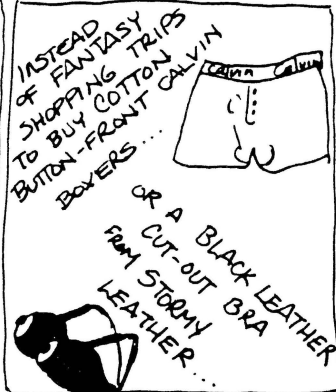 INSTEAD
OF FANTASY
SHOPPING TRIPS
TO BUY COTTON
BUTTON-FRONT CALVIN
BOXERS...
Calvin Calvin
OR A BLACK LEATHER
CUT-OUT BRA
FROM STORMY
LEATHER...